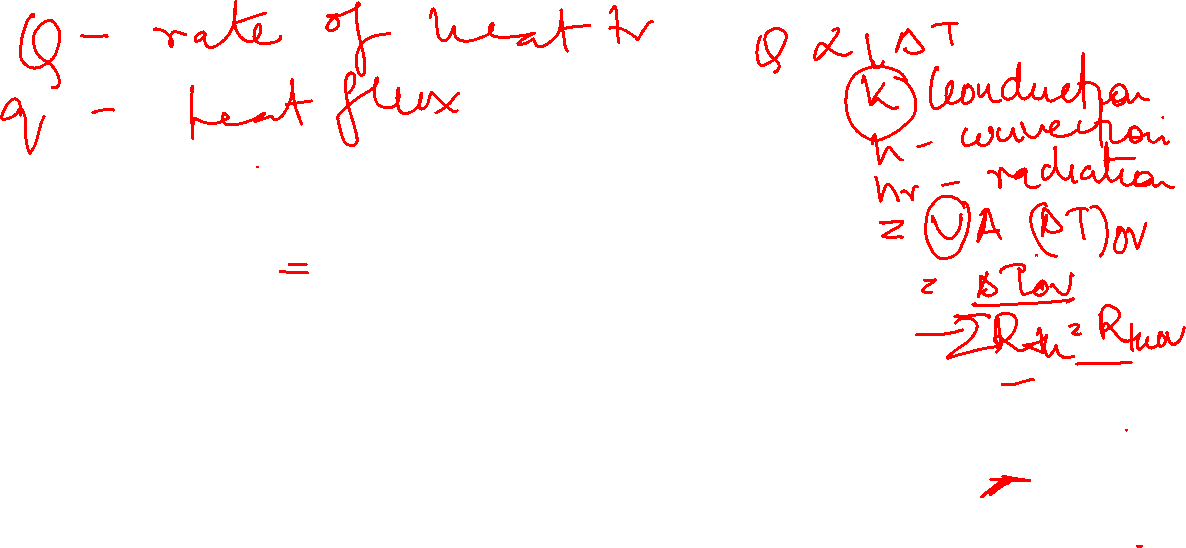 Q - rate of heat tr
q - heat flux
=
Q α ΔT
k conduction
h - convection
hr - radiation
= U A (ΔT)ov
= ΔTov
ΣRth = Rthov